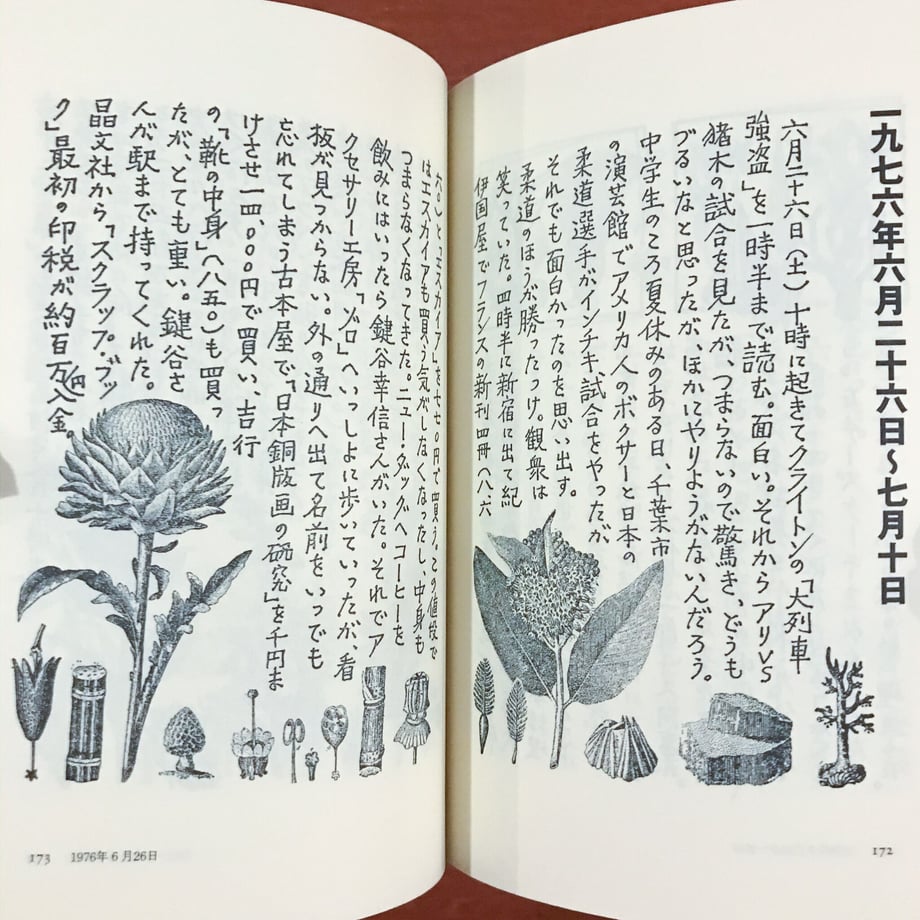 一九七六年六月二十六日〜七月十日
六月二十六日(土)十時に起きてクライトンの「大列車
強盗」を一時半まで読む。面白い。それからアリVS
猪木の試合を見たが、つまらないので驚き、どうも
づるいなと思ったが、ほかにやりようがないんだろう。
中学生のころ夏休みのある日、千葉市
の演芸館でアメリカ人のボクサーと日本の
柔道選手がインチキ試合をやったが
それでも面白かったのを思い出す。
柔道のほうが勝ったっけ。観衆は
笑っていた。四時半に新宿に出て紀
伊国屋でフランスの新刊四冊へ八六
六〇)とエスカイア」を七七〇円で買う。この値段で
はエスカイアも買う気がしなくなったし、中身も
つまらなくなってきた。ニュー・ダッグへコーヒーを
飲みにはいったら鍵谷幸信さんがいた。それでア
クセサリー工房「ゾロ」へいっしょに歩いていったが、看
板が見つからない。外の通りへ出て名前をいつでも
忘れてしまう古本屋で「日本銅版画の研究」を千円ま
けさせ一四、〇〇〇円で買い、吉行
の「靴の中身」(八五〇)も買っ
たが、とても重い。鍵谷さ
んが駅まで持ってくれた。
晶文社から「スクラップ・ブッ
ク」最初の印税が約百万円入金。
172
173 1976年6月26日